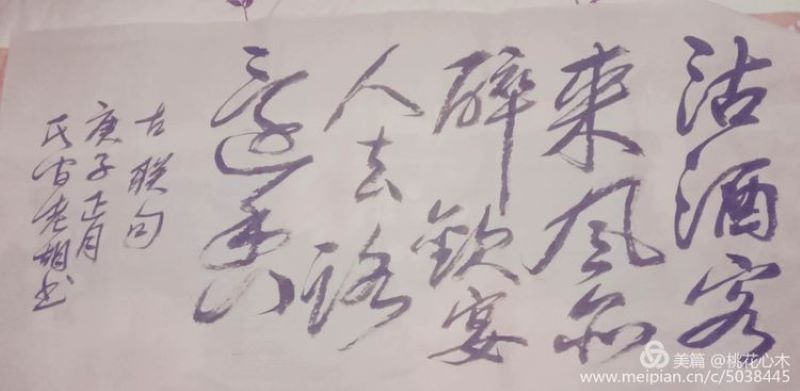 沽酒客
来风亦
醉飲宴
人去路
還香
古联句
庚子正月
老胡书
美篇 @桃花心木
www.meipian.cn/c/5038445